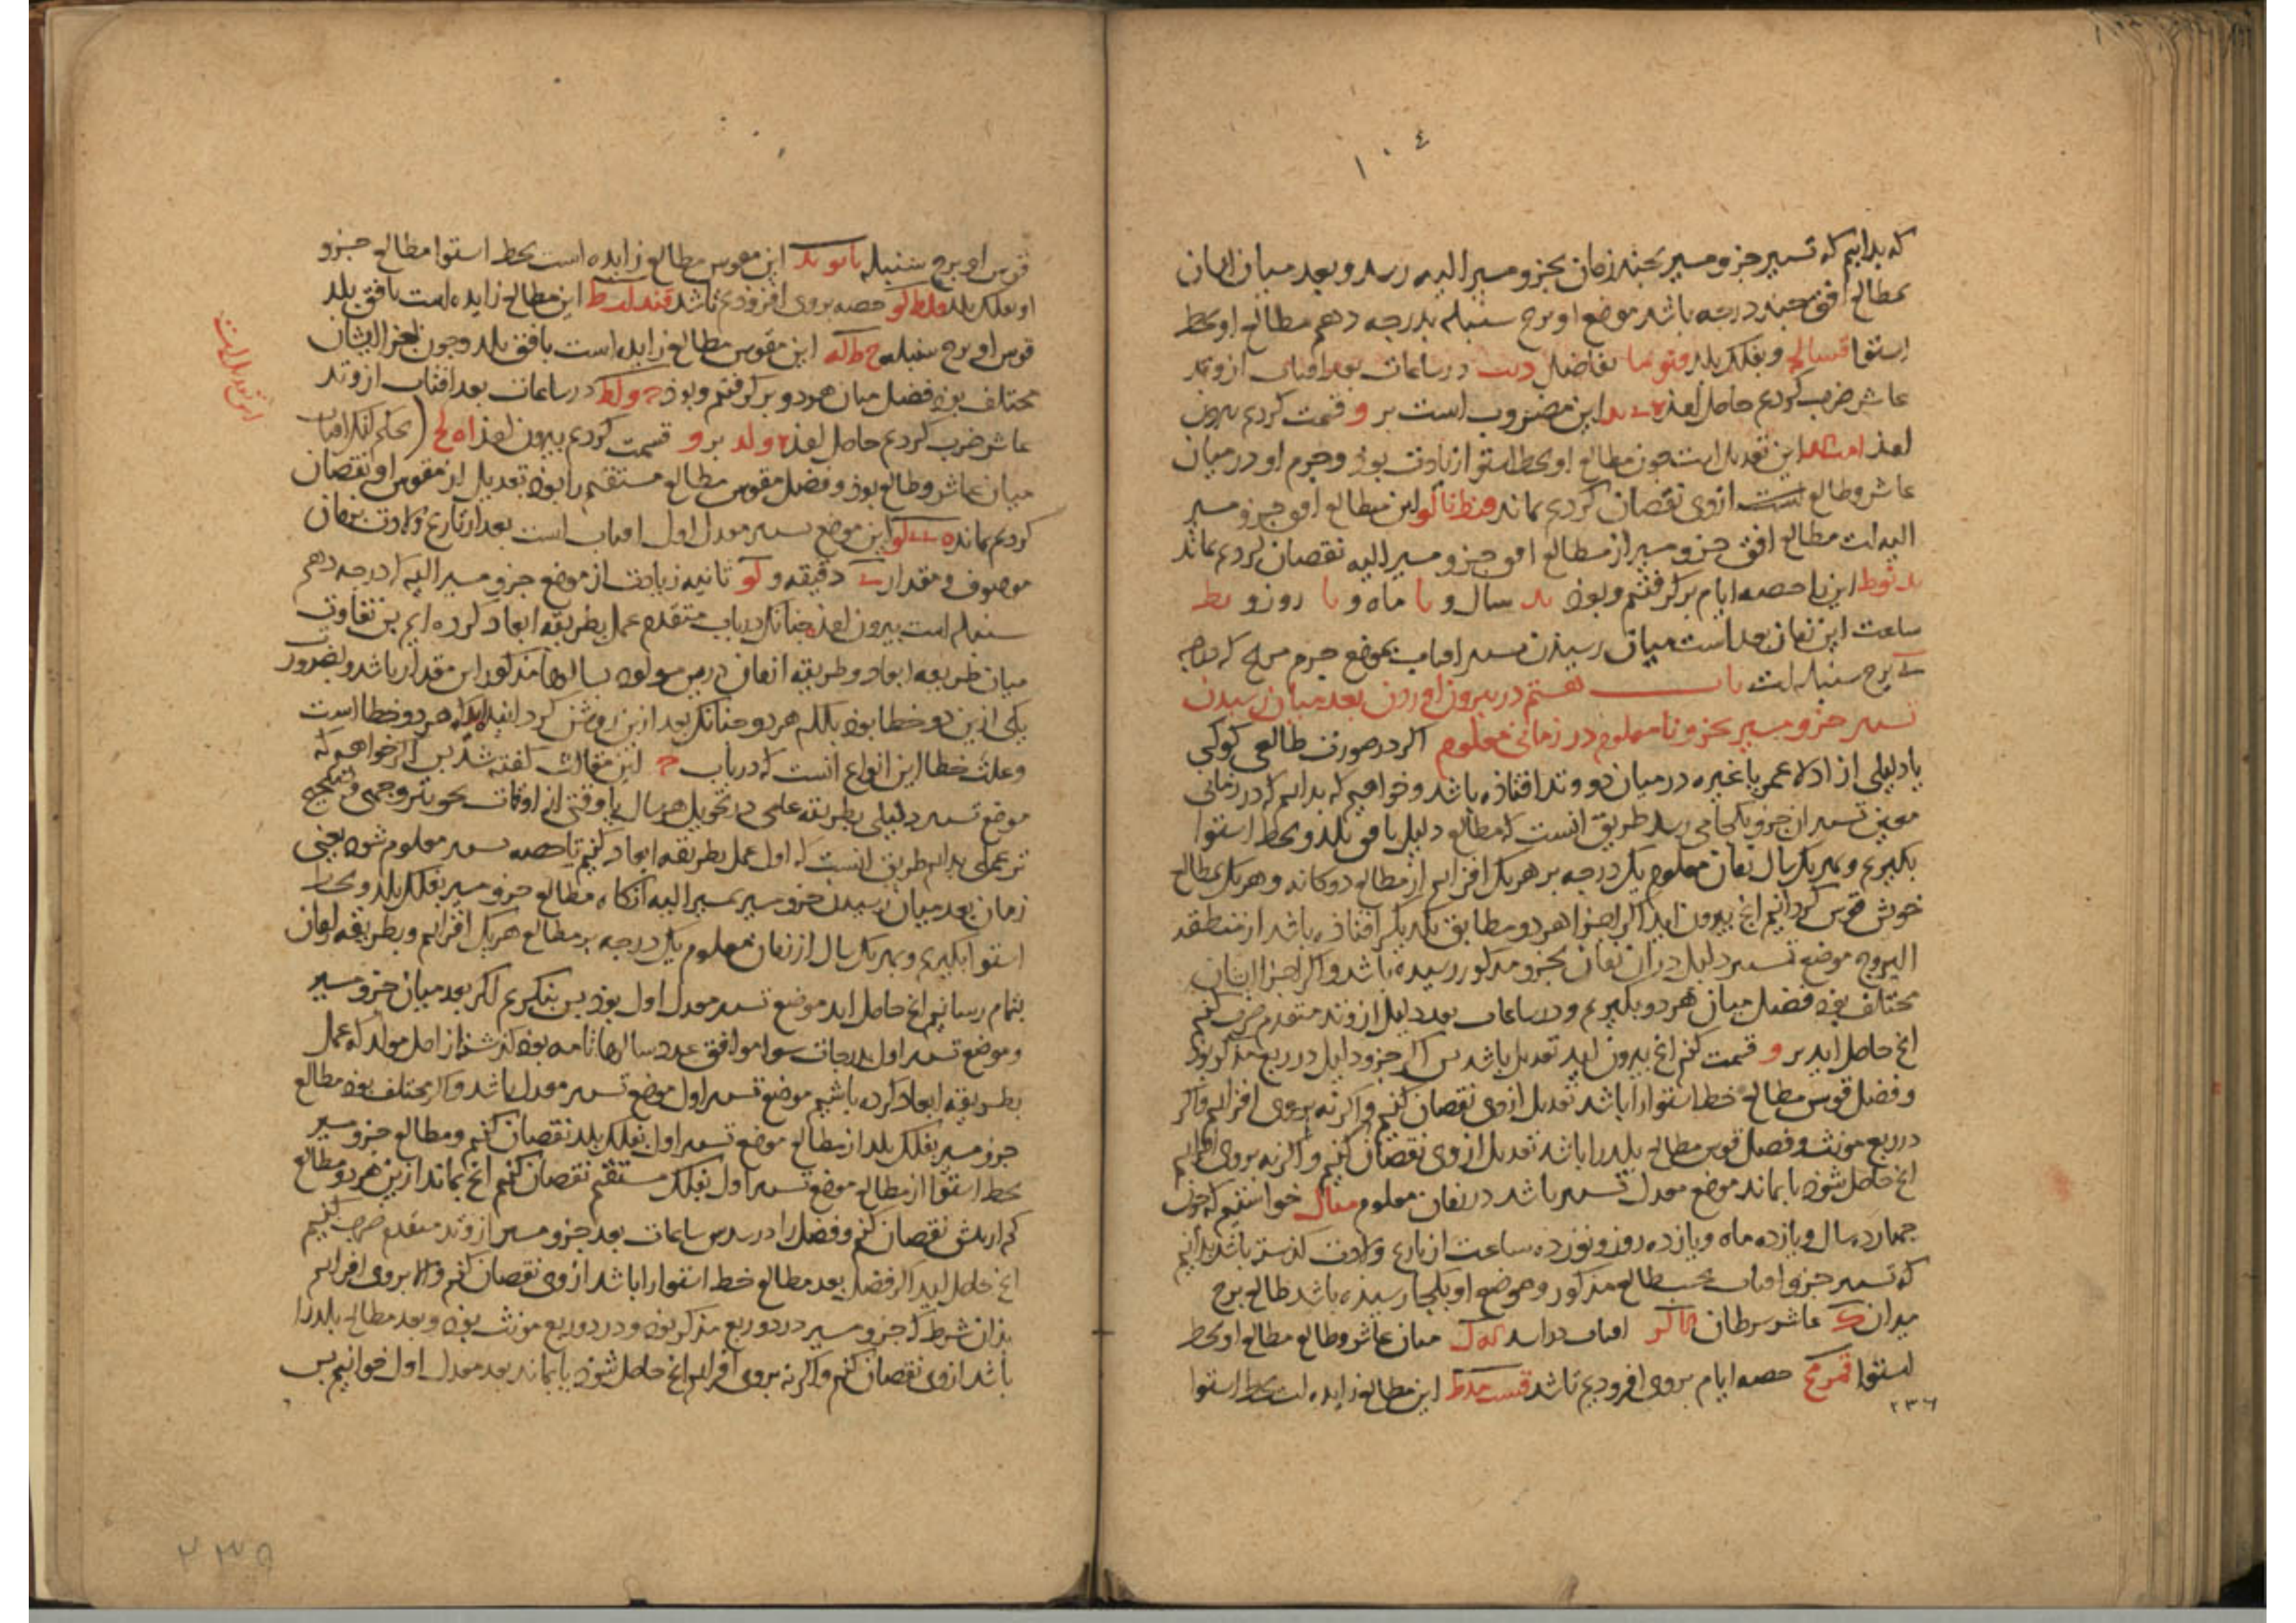 ١٠٤
که بدانیم که تسییر جزو مسیر بچند زمان بجزو مسیر الیه رسد و بعد میان ایشان
بمطالع افق چند درجه باشد موضع او برج سنبله بدرجه دهم مطالع او بخط
استوا وبفلک بلد تفاضل در ساعات بعد افتاب از وتد
عاشر ضرب کردیم حاصل امذ این مضروب است بر و قسمت کردیم بیرون
امذ این تعدیل است چون مطالع او بخط استوا زیادت بوذ وجرم او در میان
عاشر وطالع است ازوی نقصان کردیم بماند این مطالع افق جزو مسیر
الیه است مطالع افق جزو مسیر از مطالع افق جزو مسیر الیه نقصان کردیم بماند
این را حصه ایام برگرفتیم وبوذ ید سال و یا ماه و یا روز و یط
ساعت این زمان بعد است میان رسیذن تسییر افتاب بموضع جرم مریخ که درجه
ی برج سنبله است باب هشتم در بیرون اوردن بعد میان رسیدن
تسییر جزو مسیر بجزو نامعلوم در زمانی معلوم اگر در صورت طالعی کوکبی
یا دلیلی از ادلاء عمر یا غیره در میان دو وتد افتاذه باشد وخواهیم که بدانیم که در زمانی
معین تسییر ان جزو بکجا می رسد طریق انست که مطالع دلیل بافق بلد وبخط استوا
بگیریم وبهر یک سال زمان معلوم یک درجه بر هر یک افزاییم از مطالع دوکانه وهر یک بمطالع
خوش قوس گردانیم انچ بیرون اید اگر اجزا هر دو مطابق یکدیگر افتاذه باشد از منطقة
البروج موضع تسییر دلیل در ان زمان بجزو مذکور رسیده باشد واگر اجزا ایشان
مختلف بوذ فضل میان هر دو بگیریم ودر ساعات بعد دلیل از وتد متقدم ضرب کنیم
انچ حاصل اید بر و قسمت کنیم انچ بیرون اید تعدیل باشد پس اگر جزو دلیل در ربع مذکر بوذ
وفضل قوس مطالع خط استوا را باشد تعدیل ازوی نقصان کنیم واگر نه بروی افزاییم واگر
در ربع مونث وفضل قوس مطالع بلد را باشد تعدیل ازوی نقصان کنیم واگر نه بروی افزاییم
انچ حاصل شوذ یا بماند موضع معدل تسییر باشد در زمان معلوم مثال خواستیم که چون
چهارده سال ویازده ماه ویازده روز ونوزده ساعت از تاریخ ولادت گذشته باشد بدانیم
که تسییر جزو افتاب بحسب طالع مذکور وموضع او بکجا رسیذه باشد طالع برج
میزان عاشر سرطان افتاب در اسد میان عاشر وطالع مطالع او بخط
استوا حصه ایام بروی افزودیم تا شد این مطالع زایده است بخط استوا
٢٣٦
قوس او برج سنبله این مقوس مطالع زایده است بخط استوا مطالع جزو
او بفلک بلد حصه بروی افزودیم تا شد این مطالع زایده است بافق بلد
قوس او برج سنبله این مقوس مطالع زایده است بافق بلد وچون اجزا ایشان
مختلف بوذ فضل میان هر دو برگرفتیم وبوذ در ساعات بعد افتاب از وتد
عاشر ضرب کردیم حاصل امذ بر و قسمت کردیم بیرون امذ بحکم انکه افتاب
این تعدیل است
میان عاشر وطالع بوذ وفضل مقوس مطالع مستقیم را بوذ تعدیل از مقوس او نقصان
کردیم بماند این موضع تسییر معدل اول افتاب است بعد از تاریخ ولادت بزمان
موصوف ومقدار دقیقه و کو ثانیه زیادت از موضع جزو مسیر الیه که درجه دهم
سنبله است بیرون امذ چنانک در باب متقدم عمل بطریقه ابعاد کرده ایم پس تفاوت
میان طریقه ابعاد وطریقه ازمان درین مولود سالها مذکور این مقدار باشد وبضرورت
یکی ازین دو خطا بوذ بلکه هر دو چنانک بعد ازین روشن گردانید هر دو خطا است
وعلت خطا این انواع انست که در باب این مقالت گفته شد پس اگر خواهیم که
موضع تسییر دلیلی بطریقه علمی در تحویل هر سال یا وقتی از اوقات بحویتر وجهی
تر عملی بدانیم طریق انست که اول عمل بطریقه ابعاد کنیم تا حصه تسییر معلوم شود یعنی
زمان بعد میان رسیدن جزو مسیر بمسیر الیه انگاه مطالع جزو مسیر بفلک بلد وبخط
استوا بگیریم وبهر یک سال از زمان معلوم یک درجه بر مطالع هر یک افزاییم وبطریقه ازمان
بتمام رسانیم انچ حاصل اید موضع تسییر معدل اول بوذ پس بنگریم اگر بعد میان جزو مسیر
وموضع تسییر اول بدرجات سوا موافق عدد سالها تامه بوذ گذشته از اصل مولد که عمل
بطریقه ابعاد کرده باشیم موضع تسییر اول موضع تسییر معدل باشد واگر مختلف بوذ مطالع
جزو مسیر بفلک بلد از مطالع موضع تسییر اول بفلک بلد نقصان کنیم ومطالع جزو مسیر
بخط استوا از مطالع موضع تسییر اول بفلک مستقیم نقصان کنیم انچ بماند ازین هر دو مطالع
کم از بیش نقصان کنیم وفضل را در سدس ساعات بعد جزو مسیر از وتد متقدم ضرب کنیم
انچ حاصل اید اگر فضل بعد مطالع خط استوا را باشد ازوی نقصان کنیم والا بروی افزاییم
بذان شرط که جزو مسیر در دو ربع مذکر بوذ ودر دو ربع مونث بوذ وبعد مطالع بلد را
باشد ازوی نقصان کنیم واگر نه بروی افزاییم انچ حاصل شوذ یا بماند بعد معدل اول خوانیم پس
٢٣٥